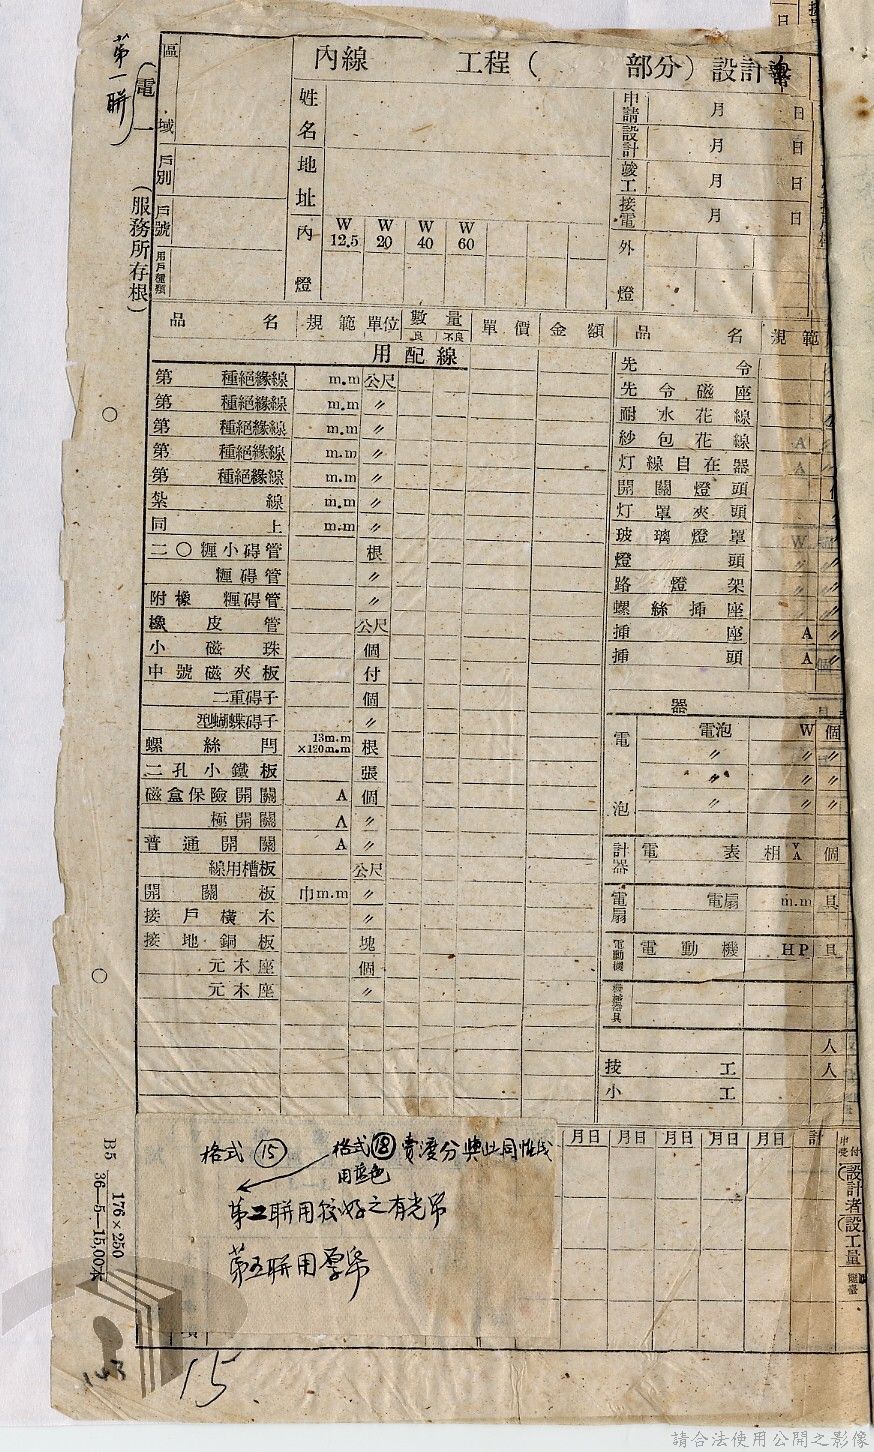 第一聯
(電一
(服務所存根)
內線 工程( 部分)設計書
區域
戶別
戶號
用戶種類
姓名
地址
內燈
W 12.5 W 20 W 40 W 60
申請 月 日
設計 月 日
竣工 月 日
接電 月 日
外燈
品名 規範 單位 數量 良 不良 單價 金額 品名 規範
用配線
第 種絕緣線 m.m 公尺
第 種絕緣線 m.m 〃
第 種絕緣線 m.m 〃
第 種絕緣線 m.m 〃
第 種絕緣線 m.m 〃
紮線 m.m 〃
同上 m.m 〃
二〇糎小碍管 根
糎碍管 〃
附橡 糎碍管 〃
橡皮管 公尺
小磁珠 個
中號磁夾板 付
二重碍子 個
型蝴蝶碍子 〃
螺絲門 13m.m ×120m.m 根
二孔小鐵板 張
磁盒保險開關 A 個
極開關 A 〃
普通開關 A 〃
線用槽板 公尺
開關板 巾m.m 〃
接戶橫木 〃
接地銅板 塊
元木座 個
元木座 〃
先令
先令磁座
耐水花線
紗包花線 A 〃
灯線自在器 A 〃
開關燈頭
灯罩夾頭
玻璃燈罩 W 〃
燈頭 〃
路燈架 〃
螺絲插座 〃
插座 A 〃
插頭 A 〃
器 具
電泡 電泡 W 個
〃 〃 〃
〃 〃 〃
〃 〃 〃
計器 電表 相 V A 個
電扇 電扇 m.m 具
電動機 電動機 HP 具
人
技工 人
小工
月日 月日 月日 月日 月日 計
(設計者)
(設工量
格式⑮
格式⑱賣渡分與此同惟線
用藍色
第二聯用較好之有光帋
第五聯用厚帋
B5 176×250
36—5—15,00本
143
15
請合法使用公開之影像